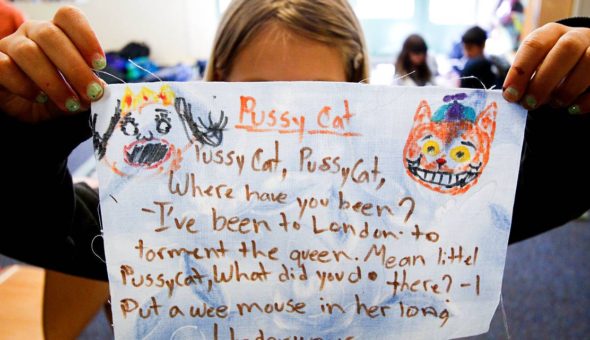 Pussy Cat
Pussy Cat, PussyCat,
Where have you been?
-I've been to London. to
torment the queen. Mean littel
PussyCat, What did you do there? -I
Put a wee mouse in her long